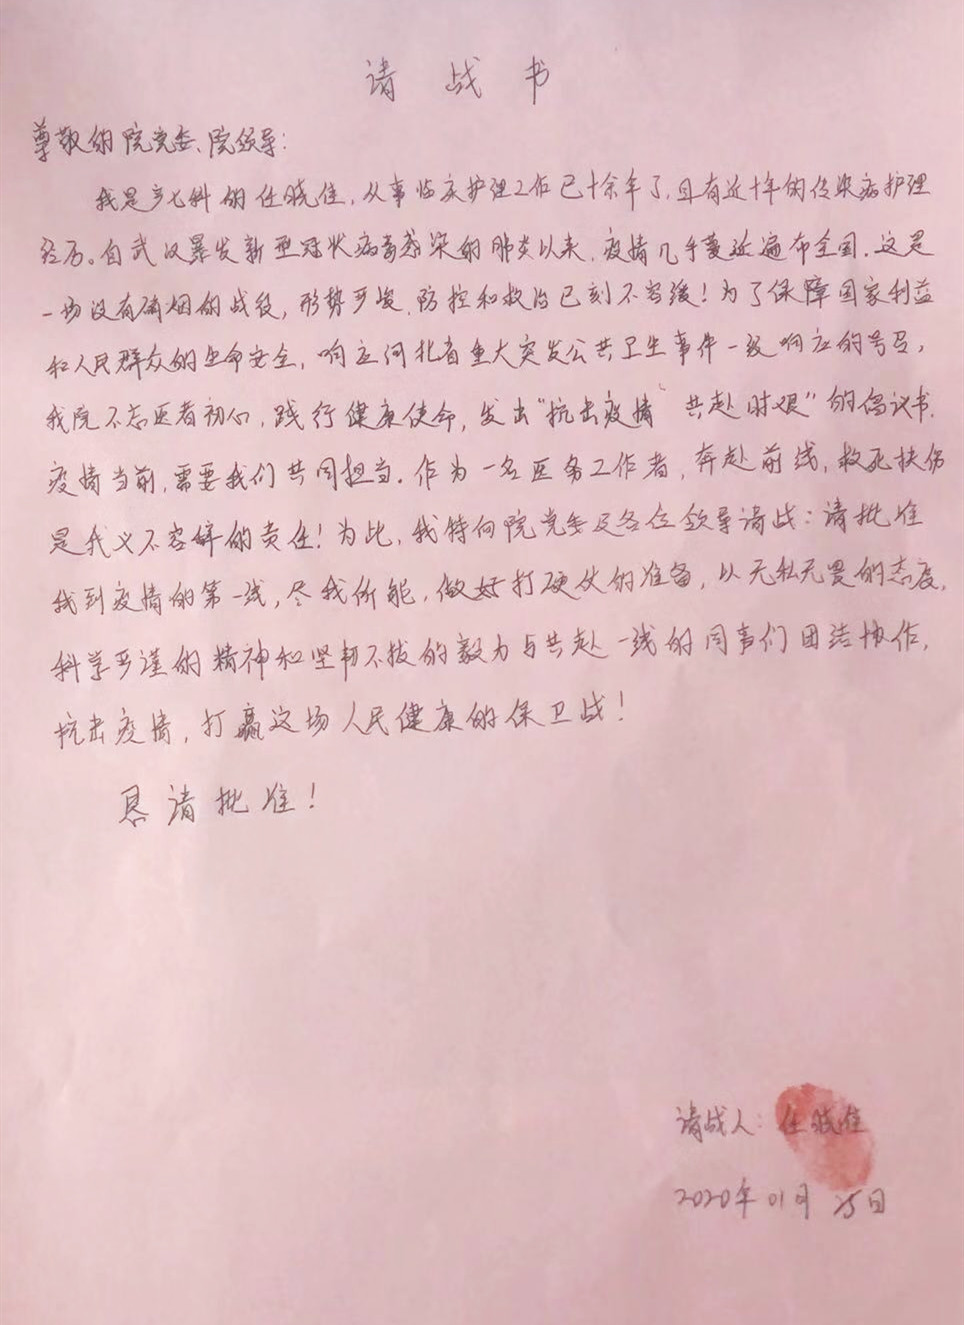 请战书
尊敬的院党委、院领导：
我是产七科的任晓佳，从事临床护理工作已十余年了，且有近十年的传染病护理
经历。自武汉暴发新型冠状病毒感染的肺炎以来，疫情几乎蔓延遍布全国。这是
一场没有硝烟的战役，形势严峻，防控和救治已刻不容缓！为了保障国家利益
和人民群众的生命安全，响应河北省重大突发公共卫生事件一级响应的号召，
我院不忘医者初心，践行健康使命，发出“抗击疫情 共赴时艰”的倡议书.
疫情当前，需要我们共同担当。作为一名医务工作者，奔赴前线，救死扶伤
是我义不容辞的责任！为此，我特向院党委及各位领导请战：请批准
我到疫情的第一线，尽我所能，做好打硬仗的准备，以无私无畏的态度，
科学严谨的精神和坚韧不拔的毅力与共赴一线的同事们团结协作，
抗击疫情，打赢这场人民健康的保卫战！
恳请批准！
请战人：任晓佳
2020年01月25日